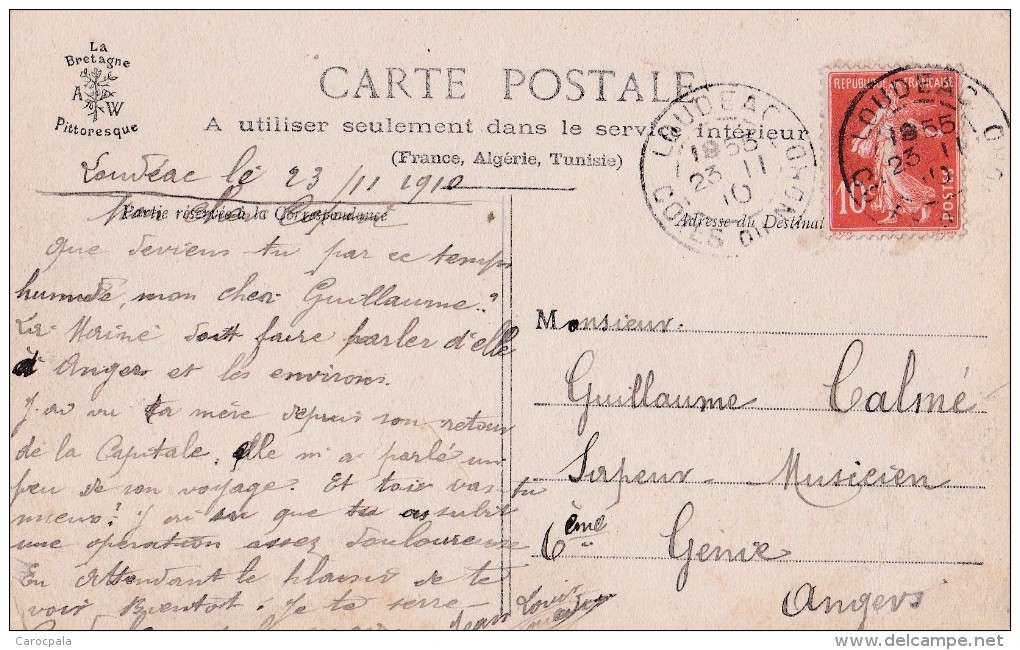 La
Bretagne
A W
Pittoresque
CARTE POSTALE
A utiliser seulement dans le service intérieur
(France, Algérie, Tunisie)
REPUBLIQUE FRANÇAISE
10
POSTES
LOUDEAC
19 55
23 11
10
COTES DU NORD
LOUDEAC
19 55
23 11
10
Loudéac le 23/11 1910
Partie réservée à la Correspondance
Adresse du Destinat
Mon cher
Que deviens tu par ce temps
humide, mon cher Guillaume?
La doit faire parler d'elle
à Angers et les environs.
J'ai vu ta mère depuis son retour
de la Capitale, elle m'a parlé un
peu de son voyage. Et toi vas-tu
mieux? J'ai su que tu as subit
une opération assez douloureuse
En attendant le plaisir de te
voir Bientot. Je te serre
Jean Louis
Monsieur.
Guillaume Calmé
Sapeur - Musicien
6ème Génie
Angers
Carocpala
delcampe.net